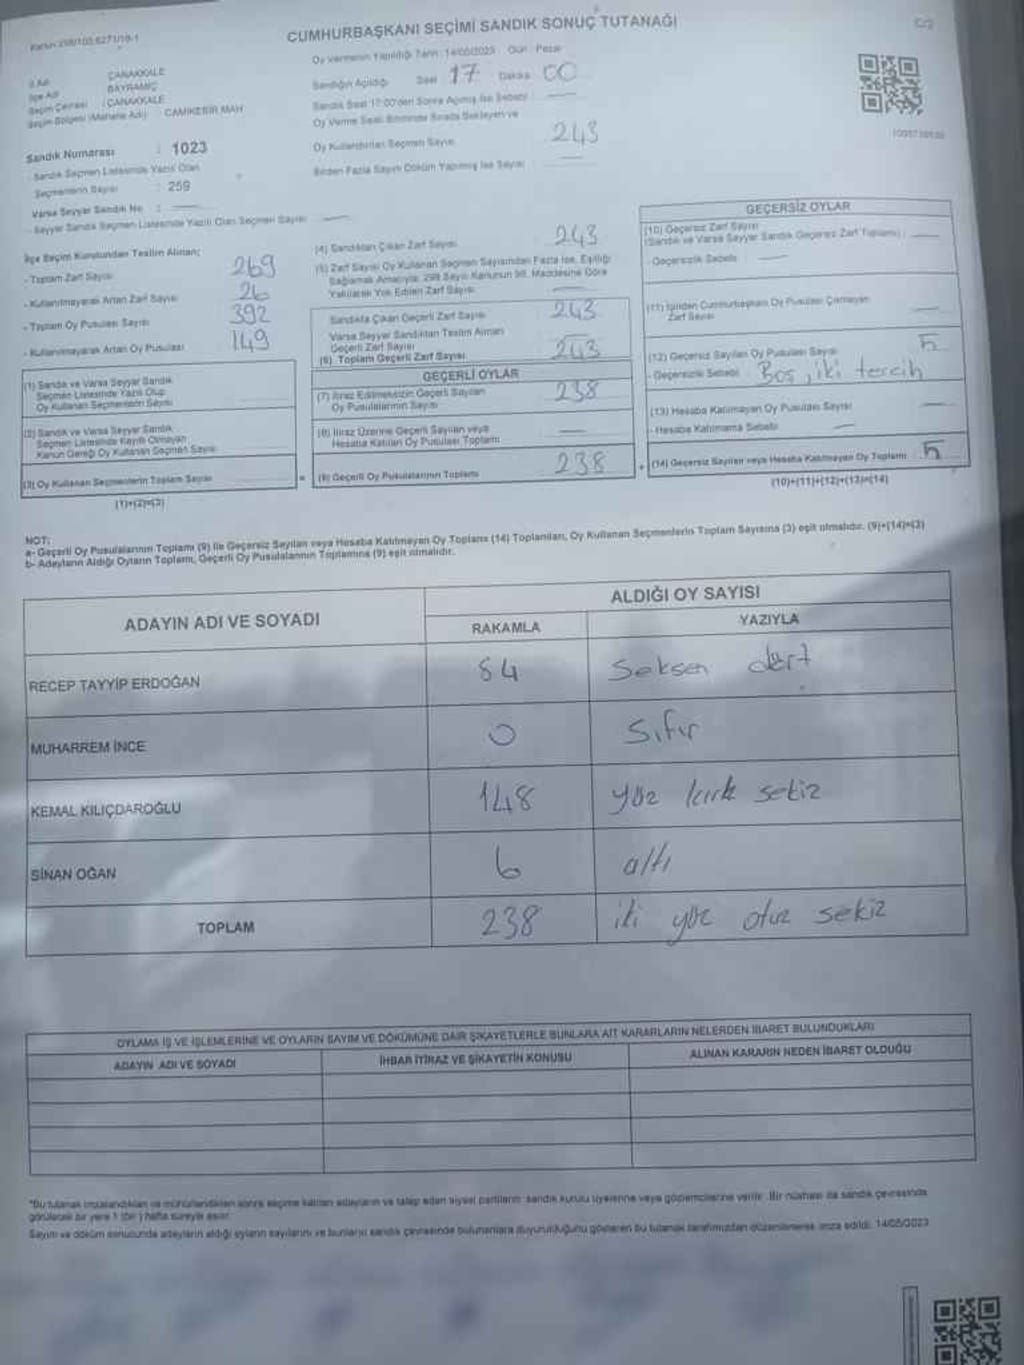 CUMHURBAŞKANI SEÇİMİ SANDIK SONUÇ TUTANAĞI
C/2
Oy Vermenin Yapıldığı Tarih : 14/05/2023 Gün : Pazar
İl Adı : ÇANAKKALE
İlçe Adı : BAYRAMİÇ
Seçim Çevresi : ÇANAKKALE
Seçim Bölgesi (Mahalle Adı) : CAMİKEBİR MAH.
Sandığın Açıldığı Saat 17 Dakika 00
Sandık Saat 17:00'den Sonra Açılmış İse Sebebi :
Oy Verme Saati Bitiminde Sırada Bekleyen ve
Oy Kullandırılan Seçmen Sayısı 243
Birden Fazla Sayım Döküm Yapılmış İse Sayısı
Sandık Numarası : 1023
Sandık Seçmen Listesinde Yazılı Olan
Seçmenlerin Sayısı : 259
Varsa Seyyar Sandık No :
- Seyyar Sandık Seçmen Listesinde Yazılı Olan Seçmen Sayısı
İlçe Seçim Kurulundan Teslim Alınan;
- Toplam Zarf Sayısı 269
- Kullanılmayarak Artan Zarf Sayısı 26
- Toplam Oy Pusulası Sayısı 392
- Kullanılmayarak Artan Oy Pusulası 149
(1) Sandık ve Varsa Seyyar Sandık
Seçmen Listesinde Yazılı Olup
Oy Kullanan Seçmenlerin Sayısı
(2) Sandık ve Varsa Seyyar Sandık
Seçmen Listesinde Kayıtlı Olmayan
Kanun Gereği Oy Kullanan Seçmen Sayısı
(3) Oy Kullanan Seçmenlerin Toplam Sayısı
(1)+(2)=(3)
(4) Sandıktan Çıkan Zarf Sayısı 243
(5) Zarf Sayısı Oy Kullanan Seçmen Sayısından Fazla İse, Eşitliği
Sağlamak Amacıyla, 298 Sayılı Kanunun 98. Maddesine Göre
Yakılarak Yok Edilen Zarf Sayısı
Sandıkta Çıkan Geçerli Zarf Sayısı 243
Varsa Seyyar Sandıktan Teslim Alınan
Geçerli Zarf Sayısı
(6) Toplam Geçerli Zarf Sayısı 243
GEÇERLİ OYLAR
(7) İtiraz Edilmeksizin Geçerli Sayılan
Oy Pusulalarının Sayısı 238
(8) İtiraz Üzerine Geçerli Sayılan veya
Hesaba Katılan Oy Pusulası Toplamı
(9) Geçerli Oy Pusulalarının Toplamı 238
GEÇERSİZ OYLAR
(10) Geçersiz Zarf Sayısı
(Sandık ve Varsa Seyyar Sandık Geçersiz Zarf Toplamı) :
- Geçersizlik Sebebi :
(11) İçinden Cumhurbaşkanı Oy Pusulası Çıkmayan
Zarf Sayısı
(12) Geçersiz Sayılan Oy Pusulası Sayısı 5
- Geçersizlik Sebebi : Boş, iki tercih
(13) Hesaba Katılmayan Oy Pusulası Sayısı
- Hesaba Katılmama Sebebi
(14) Geçersiz Sayılan veya Hesaba Katılmayan Oy Toplamı 5
(10)+(11)+(12)+(13)=(14)
NOT:
a- Geçerli Oy Pusulalarının Toplamı (9) ile Geçersiz Sayılan veya Hesaba Katılmayan Oy Toplamı (14) Toplamları, Oy Kullanan Seçmenlerin Toplam Sayısına (3) eşit olmalıdır. (9)+(14)=(3)
b- Adayların Aldığı Oyların Toplamı, Geçerli Oy Pusulalarının Toplamına (9) eşit olmalıdır.
ADAYIN ADI VE SOYADI
ALDIĞI OY SAYISI
RAKAMLA YAZIYLA
RECEP TAYYİP ERDOĞAN 84 Seksen dört
MUHARREM İNCE 0 Sıfır
KEMAL KILIÇDAROĞLU 148 yüz kırk sekiz
SİNAN OĞAN 6 altı
TOPLAM 238 iki yüz otuz sekiz
OYLAMA İŞ VE İŞLEMLERİNE VE OYLARIN SAYIM VE DÖKÜMÜNE DAİR ŞİKAYETLERLE BUNLARA AİT KARARLARIN NELERDEN İBARET BULUNDUKLARI
ADAYIN ADI VE SOYADI İHBAR İTİRAZ VE ŞİKAYETİN KONUSU ALINAN KARARIN NEDEN İBARET OLDUĞU
*Bu tutanak imzalandıktan ve mühürlendikten sonra seçime katılan adayların ve talep eden siyasi partilerin sandık kurulu üyelerine veya gözlemcilerine verilir. Bir nüshası da sandık çevresinde
görülecek bir yere 1 (bir) hafta süreyle asılır.
Sayım ve döküm sonucunda adayların aldığı oyların sayılarını ve bunların sandık çevresinde bulunanlara duyurulduğunu gösteren bu tutanak tarafımızdan düzenlenerek imza edildi. 14/05/2023